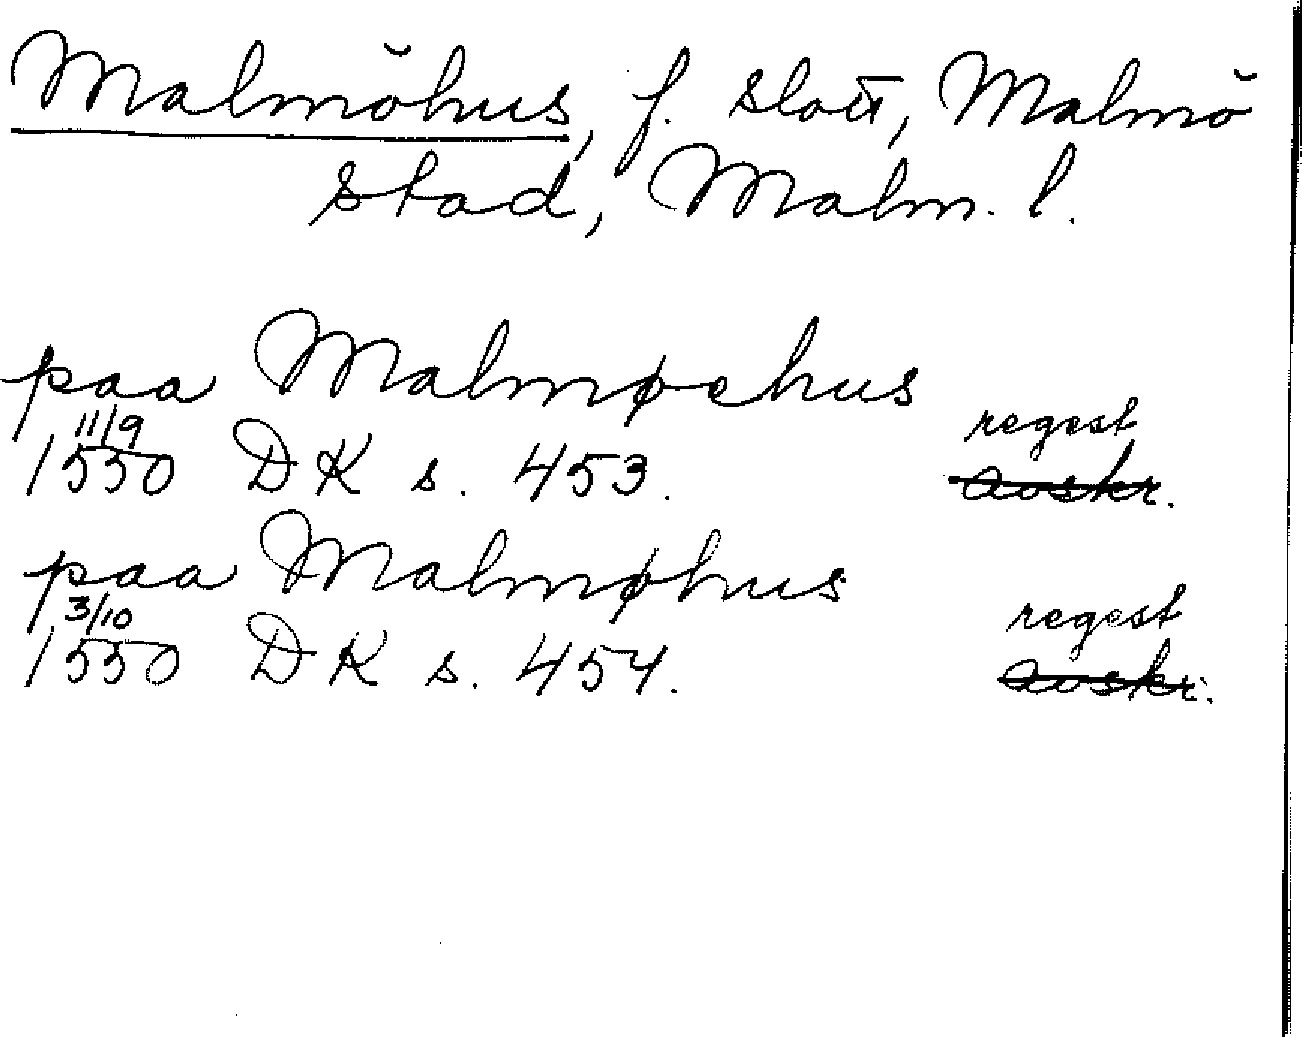 Malmöhus, f. slott, Malmö
stad, Malm. l.
paa Malmøehus
11/9 regest
1550 DK s. 453. avskr.
paa Malmøhus
3/10 regest
1550 DK s. 454. avskr.